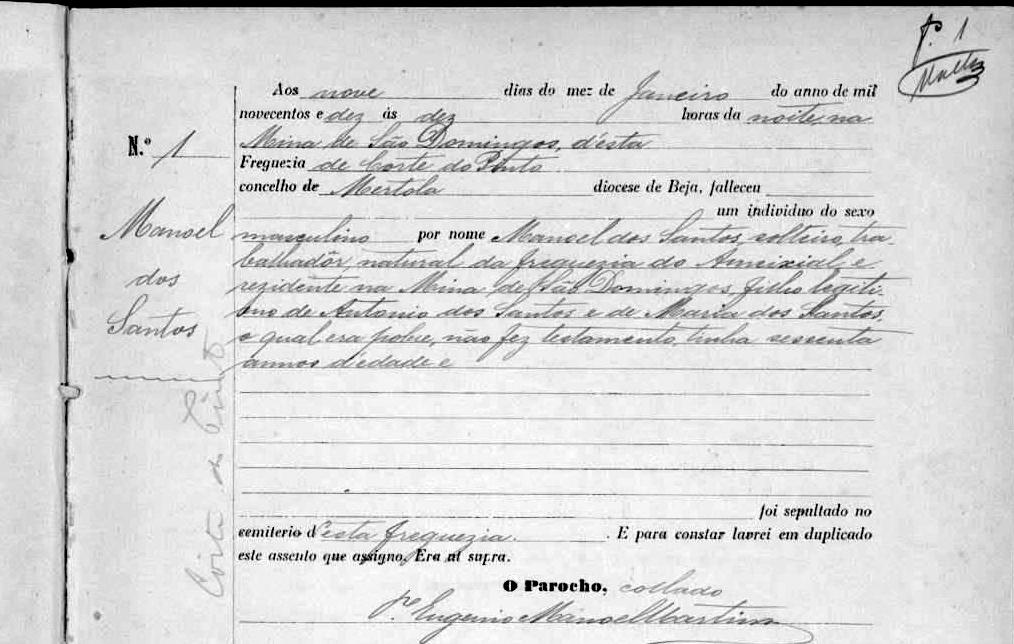 f. 1
Aos nove dias do mez de Janeiro do anno de mil
novecentos e dez ás dez horas da noite, na
N.º 1
Mina de São Domingos, d'esta
Freguezia de Corte do Pinto
concelho de Mertola diocese de Beja, falleceu
um individuo do sexo
Manoel
dos
Santos
masculino por nome Manoel dos Santos, solteiro, tra-
balhadôr, natural da freguezia do Ameixial, e
rezidente na Mina de São Domingos, filho legiti-
mo de Antonio dos Santos e de Maria dos Santos,
o qual era pobre, não fez testamento, tinha sessenta
annos d'edade e
Corte do Pinto
foi sepultado no
cemiterio d'esta freguezia. E para constar lavrei em duplicado
este assento que assigno. Era ut supra.
O Parocho, collado
P.e Eugenio Manoel Martins